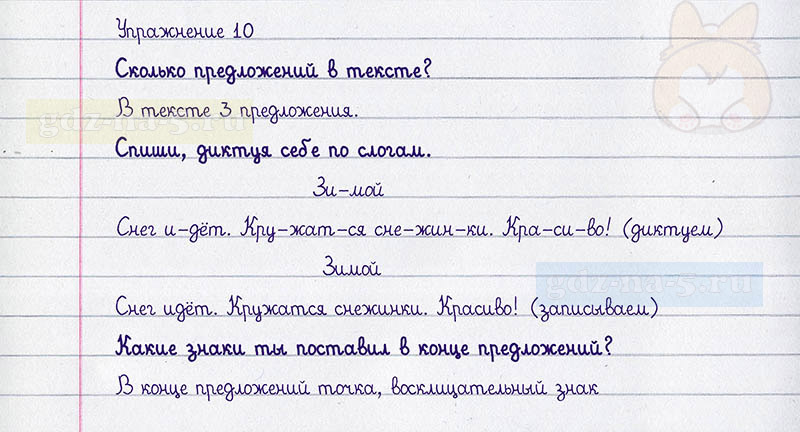 Упражнение 10
Сколько предложений в тексте?
В тексте 3 предложения.
gdz-na-5.ru
Спиши, диктуя себе по слогам.
Зи-мой
Снег и-дёт. Кру-жат-ся сне-жин-ки. Кра-си-во! (диктуем)
Зимой
gdz-na-5.ru
Снег идёт. Кружатся снежинки. Красиво! (записываем)
Какие знаки ты поставил в конце предложений?
В конце предложений точка, восклицательный знак